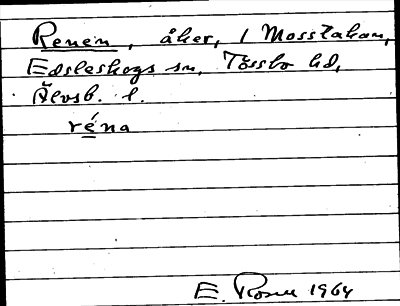 Renen, åker, i Mosstakan,
Edsleskogs sn, Tössbo hd,
Älvsb. l.
réna
E. Rosén 1964